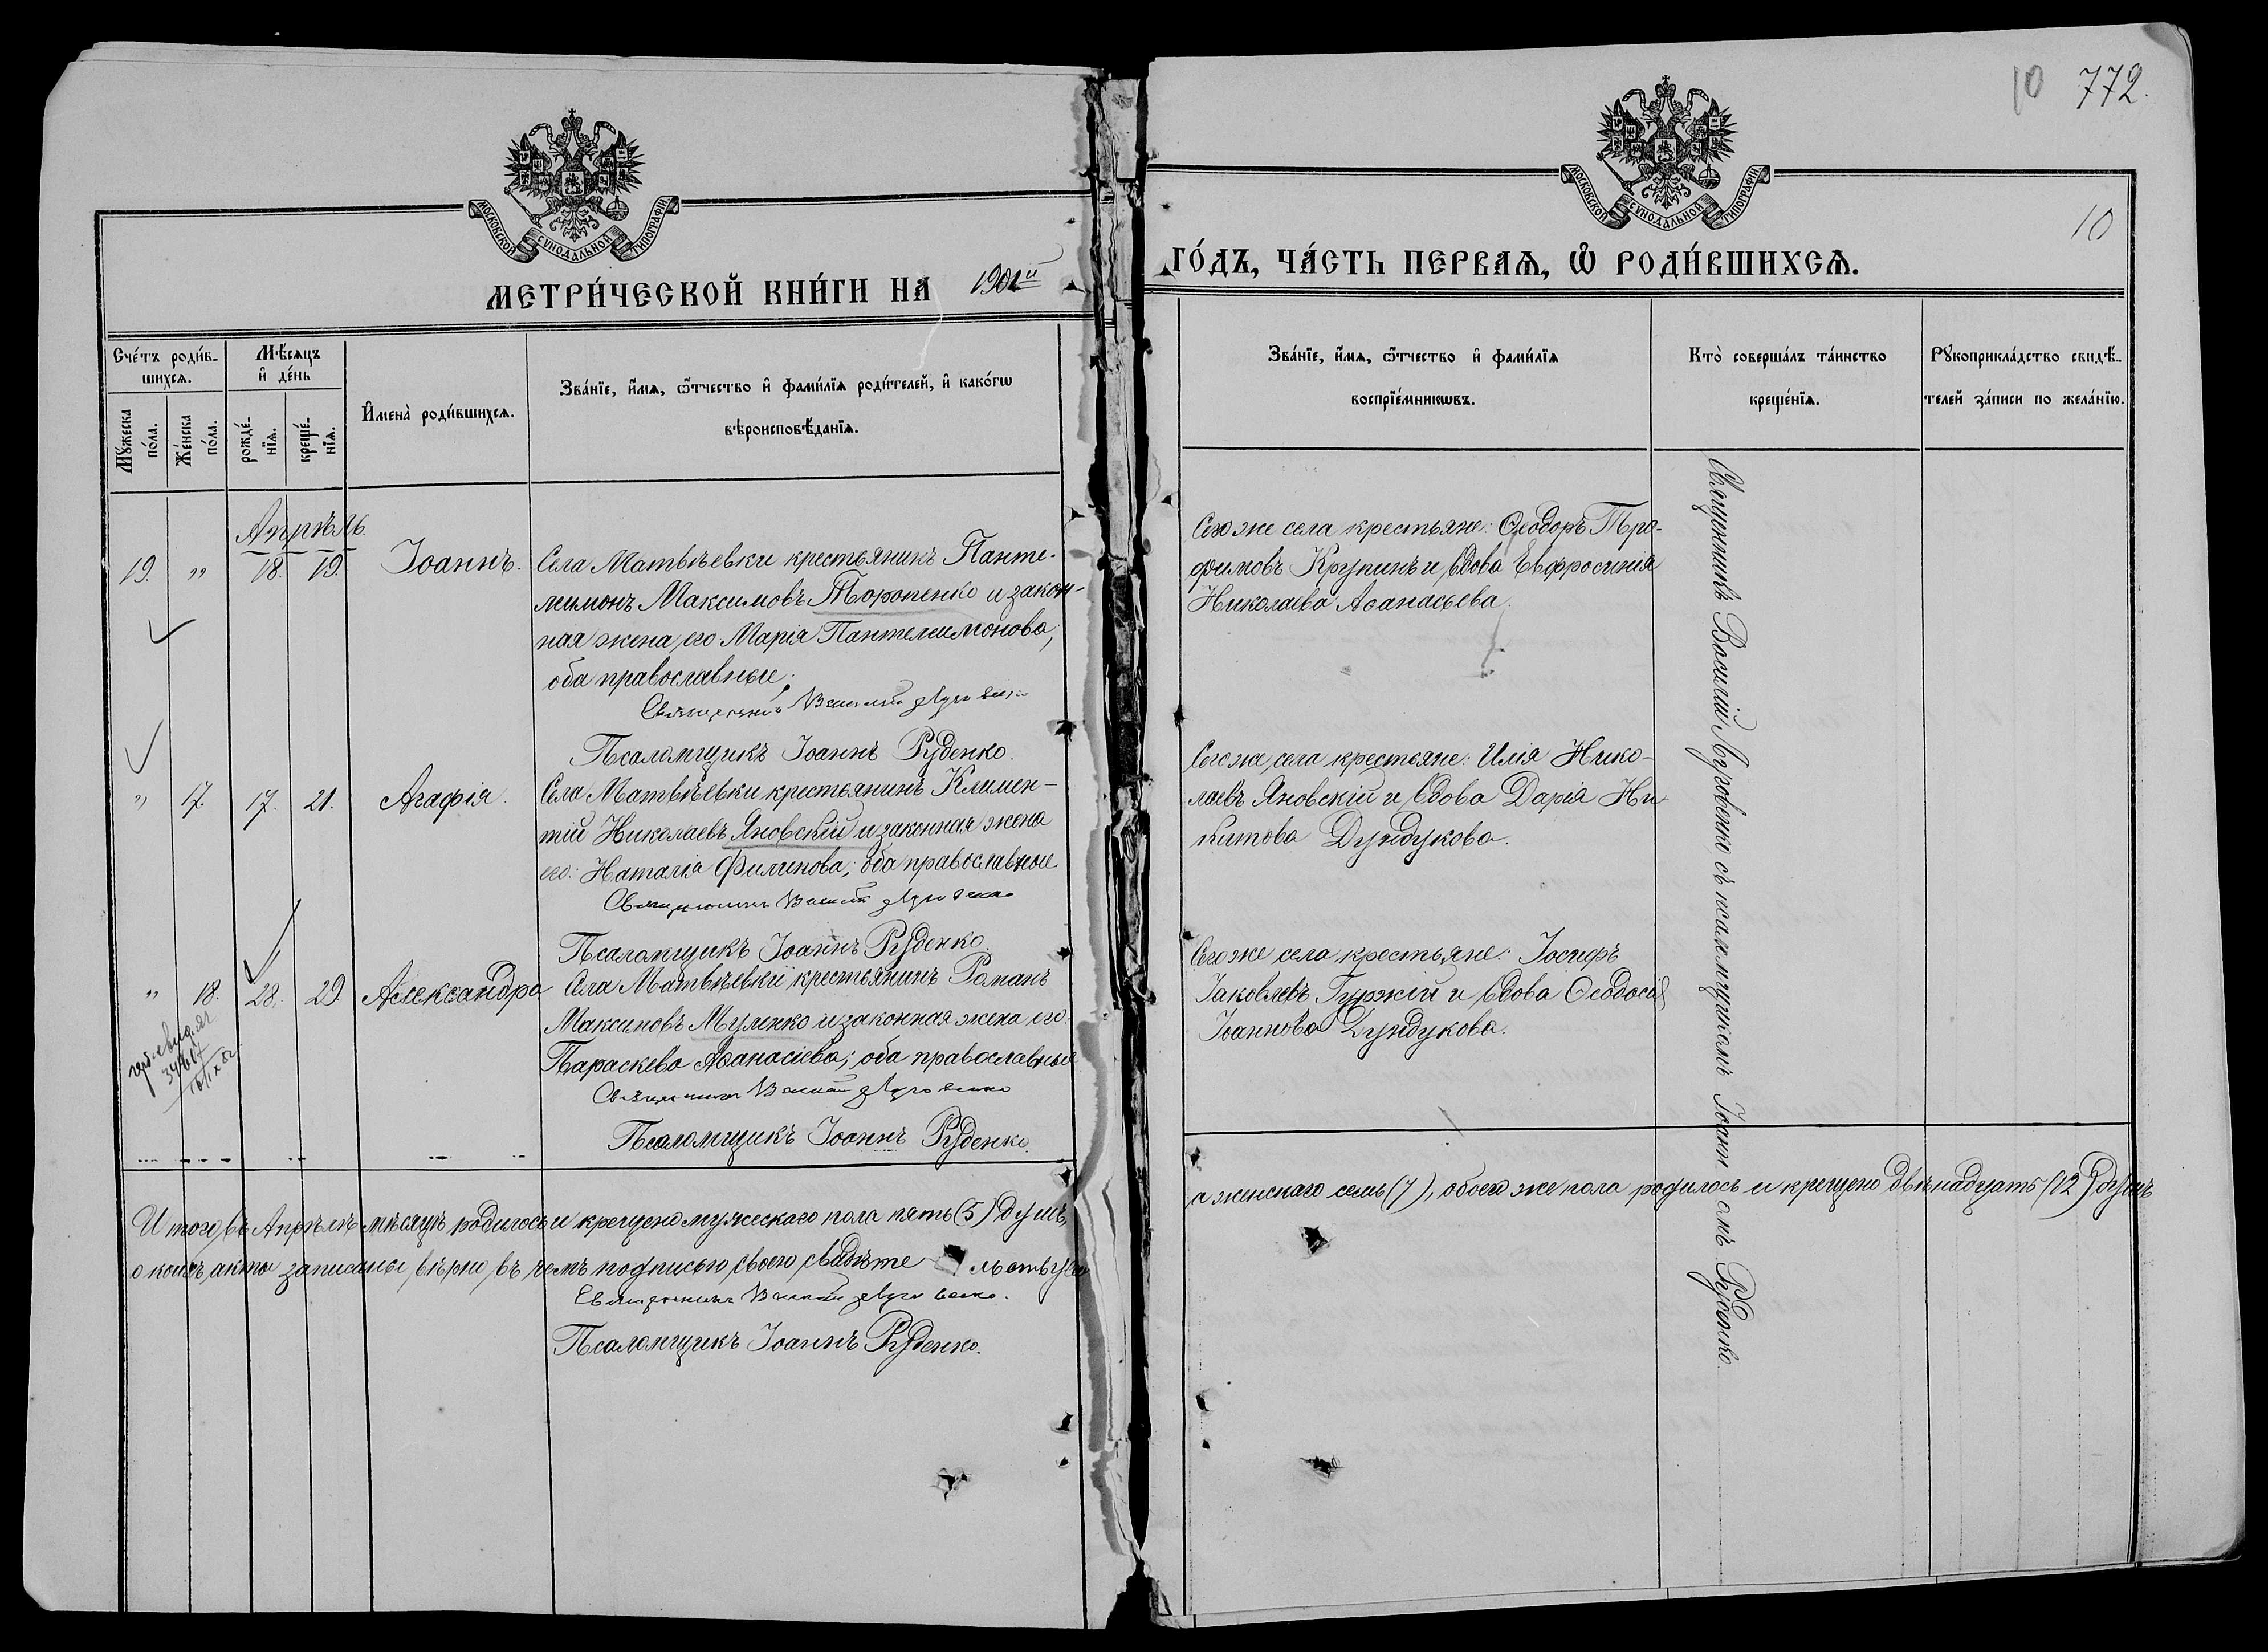 10 772.
10
МОСКОВСКОЙ СѴНОДАЛЬНОЙ ТИПОГРАФІИ
МОСКОВСКОЙ СѴНОДАЛЬНОЙ ТИПОГРАФІИ
МЕТРИ́ЧЕСКОЙ КНИ́ГИ НА 1901й
ГО́ДЪ, ЧА́СТЬ ПЕРВАѦ, Ѽ РОДИ́ВШИХСѦ.
Сче́тъ роди́в-
шихсѧ.
Мѣ́сяцъ
и҆ де́нь
Мꙋ́жеска по́ла.
Же́нска по́ла.
рожде́-
нїѧ.
креще́-
нїѧ.
И҆мена̀ роди́вшихсѧ.
Зва́нїе, и҆́мѧ, ѻ҆́тчество и҆ фами́лїѧ роди́телей, и҆ како́гѡ
вѣроисповѣ́данїѧ.
Зва́нїе, и҆́мѧ, ѻ҆́тчество и҆ фами́лїѧ
воспрїе́мникѡвъ.
Кто̀ соверша́лъ та́инство
креще́нїѧ.
Рꙋкоприкла́дство свидѣ́-
телей за́писи по жела́нїю.
Апрѣль.
19. " 18. 19. Іоаннъ.
Села Матвѣевки крестьянинъ Панте-
леимонъ Максимовъ Торопенко и закон-
ная жена его Марія Пантелеимонова;
оба православные.
Священникъ Василій Луговенко
Псаломщикъ Іоаннъ Руденко.
Того же села крестьяне: Ѳеодоръ Тро-
фимовъ Крупинъ и вдова Евфросинія
Николаева Аѳанасьева.
" 17. 17. 21. Агафія.
Села Матвѣевки крестьянинъ Климен-
тій Николаевъ Яновскій и законная жена
его: Наталія Филипова; оба православные
Священникъ Василій Луговенко
Псаломщикъ Іоаннъ Руденко.
Того же села крестьяне: Илія Нико-
лаевъ Яновскій и вдова Дарія Ни-
китова Дундукова.
" 18. 28. 29. Александра
Села Матвѣевки крестьянинъ Романъ
Максимовъ Муленко и законная жена его
Параскева Аѳанасіева; оба православные
Священникъ Василій Луговенко
Псаломщикъ Іоаннъ Руденко.
Того же села крестьяне: Іосифъ
Іаковлевъ Гуржій и вдова Ѳеодосія
Іоаннова Дундукова.
Священникъ Василій Луговенко съ псаломщикомъ Іоанномъ Руденко.
Итого въ Апрѣлѣ мѣсяцѣ родилось и крещено мужескаго пола пять (5) душъ,
а женскаго семь (7), обоего же пола родилось и крещено двѣнадцать (12) душъ
о коихъ акты записаны вѣрно, въ чемъ подписью своею свидѣтельствуемъ
Священникъ Василій Луговенко.
Псаломщикъ Іоаннъ Руденко.